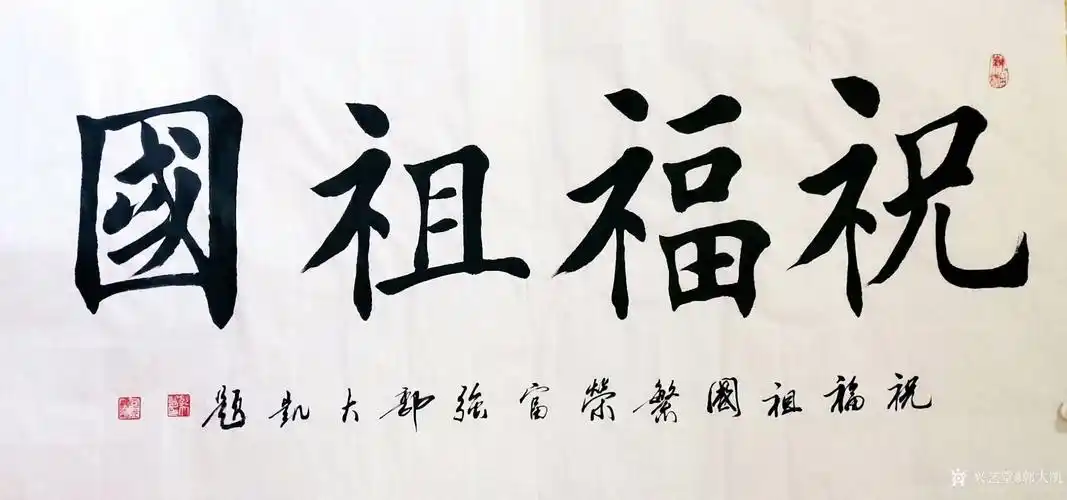 祝福祖國
祝福祖國繁榮富強郭大凯題
兴艺堂@郭大凯